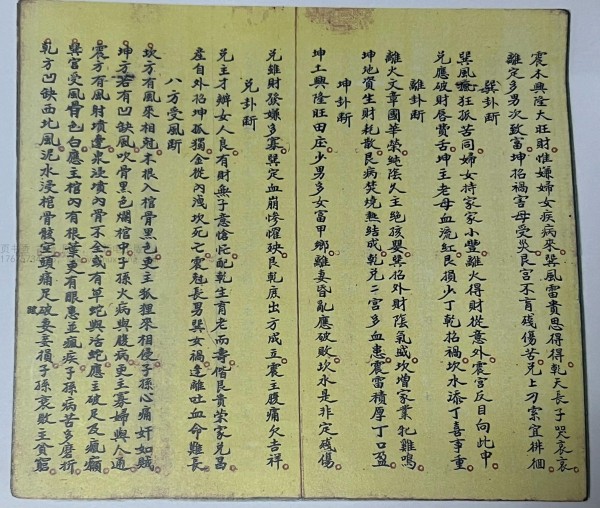 震木興隆大旺財惟嫌婦女疾病來巽風雷貴思得得乾天長子哭哀哀
離定多男次致富坤招禍害母受災艮宮不育殘傷苦兌上刀索宜徘徊
巽卦断
巽風癫狂孤苦同婦女持家家小豐離火得財從意外震宮反目向此中
兌應破財唇齒舌坤主老母血流紅艮損少丁乾招禍坎水添丁喜事重
離卦断
離火文章國華榮純陰久主絶孩嬰巽招外財陰氣盛坎增家業牝雞鳴
坤地資生財耗散艮病焚燒熱結成乾兌二宮多血患震雷積厚丁口盈
坤卦断
坤土興隆旺田庄少男多女富甲鄉離妻昏亂應破敗坎水是非定殘傷
兌雖財發嫌多寡巽定血崩慘懼殃艮乾底出方成立震主腹痛欠吉祥
兌卦断
兌主才辦女人良有財無子意愴忙配乾生育老而壽偕艮貴榮家兌昌
產自外招坤孤獨金從內洩坎死亡震尅長男巽女禍逢離吐血命難長
八方受風断
坎方有風來相尅木根入棺骨黑色更主狐狸來相侵子孫心痛奸如賊
坤方若有凹缺風吹骨黑色爛棺中子孫火病與腹病更主寡婦與人通
震方有風射墳邊泉浸墳內骨不全或有草蛇與活蛇應主破足及瘋癲
巽宮受風骨色白應主棺內有根葉更有眼患並瘋疾子孫病苦多磨折
乾方凹缺西北風泥水浸棺骨骸空頭痛足破妻妾損子孫衰敗主貧窮